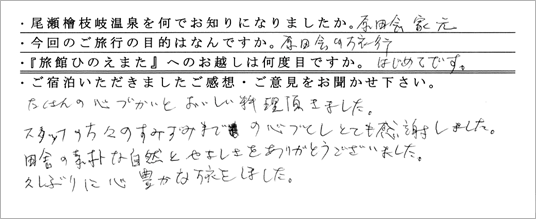 ・尾瀬檜枝岐温泉を何でお知りになりましたか。原田会家元
・今回のご旅行の目的はなんですか。原田会の旅行
・『旅館ひのえまた』へのお越しは何度目ですか。はじめてです。
・ご宿泊いただきましたご感想・ご意見をお聞かせ下さい。
たくさんの心づかいとおいしい料理頂きました。
スタッフの方々のすみずみまでの心づくしとても感謝しました。
田舎の素朴な自然とやさしさをありがとうございました。
久しぶりに心豊かな旅をしました。